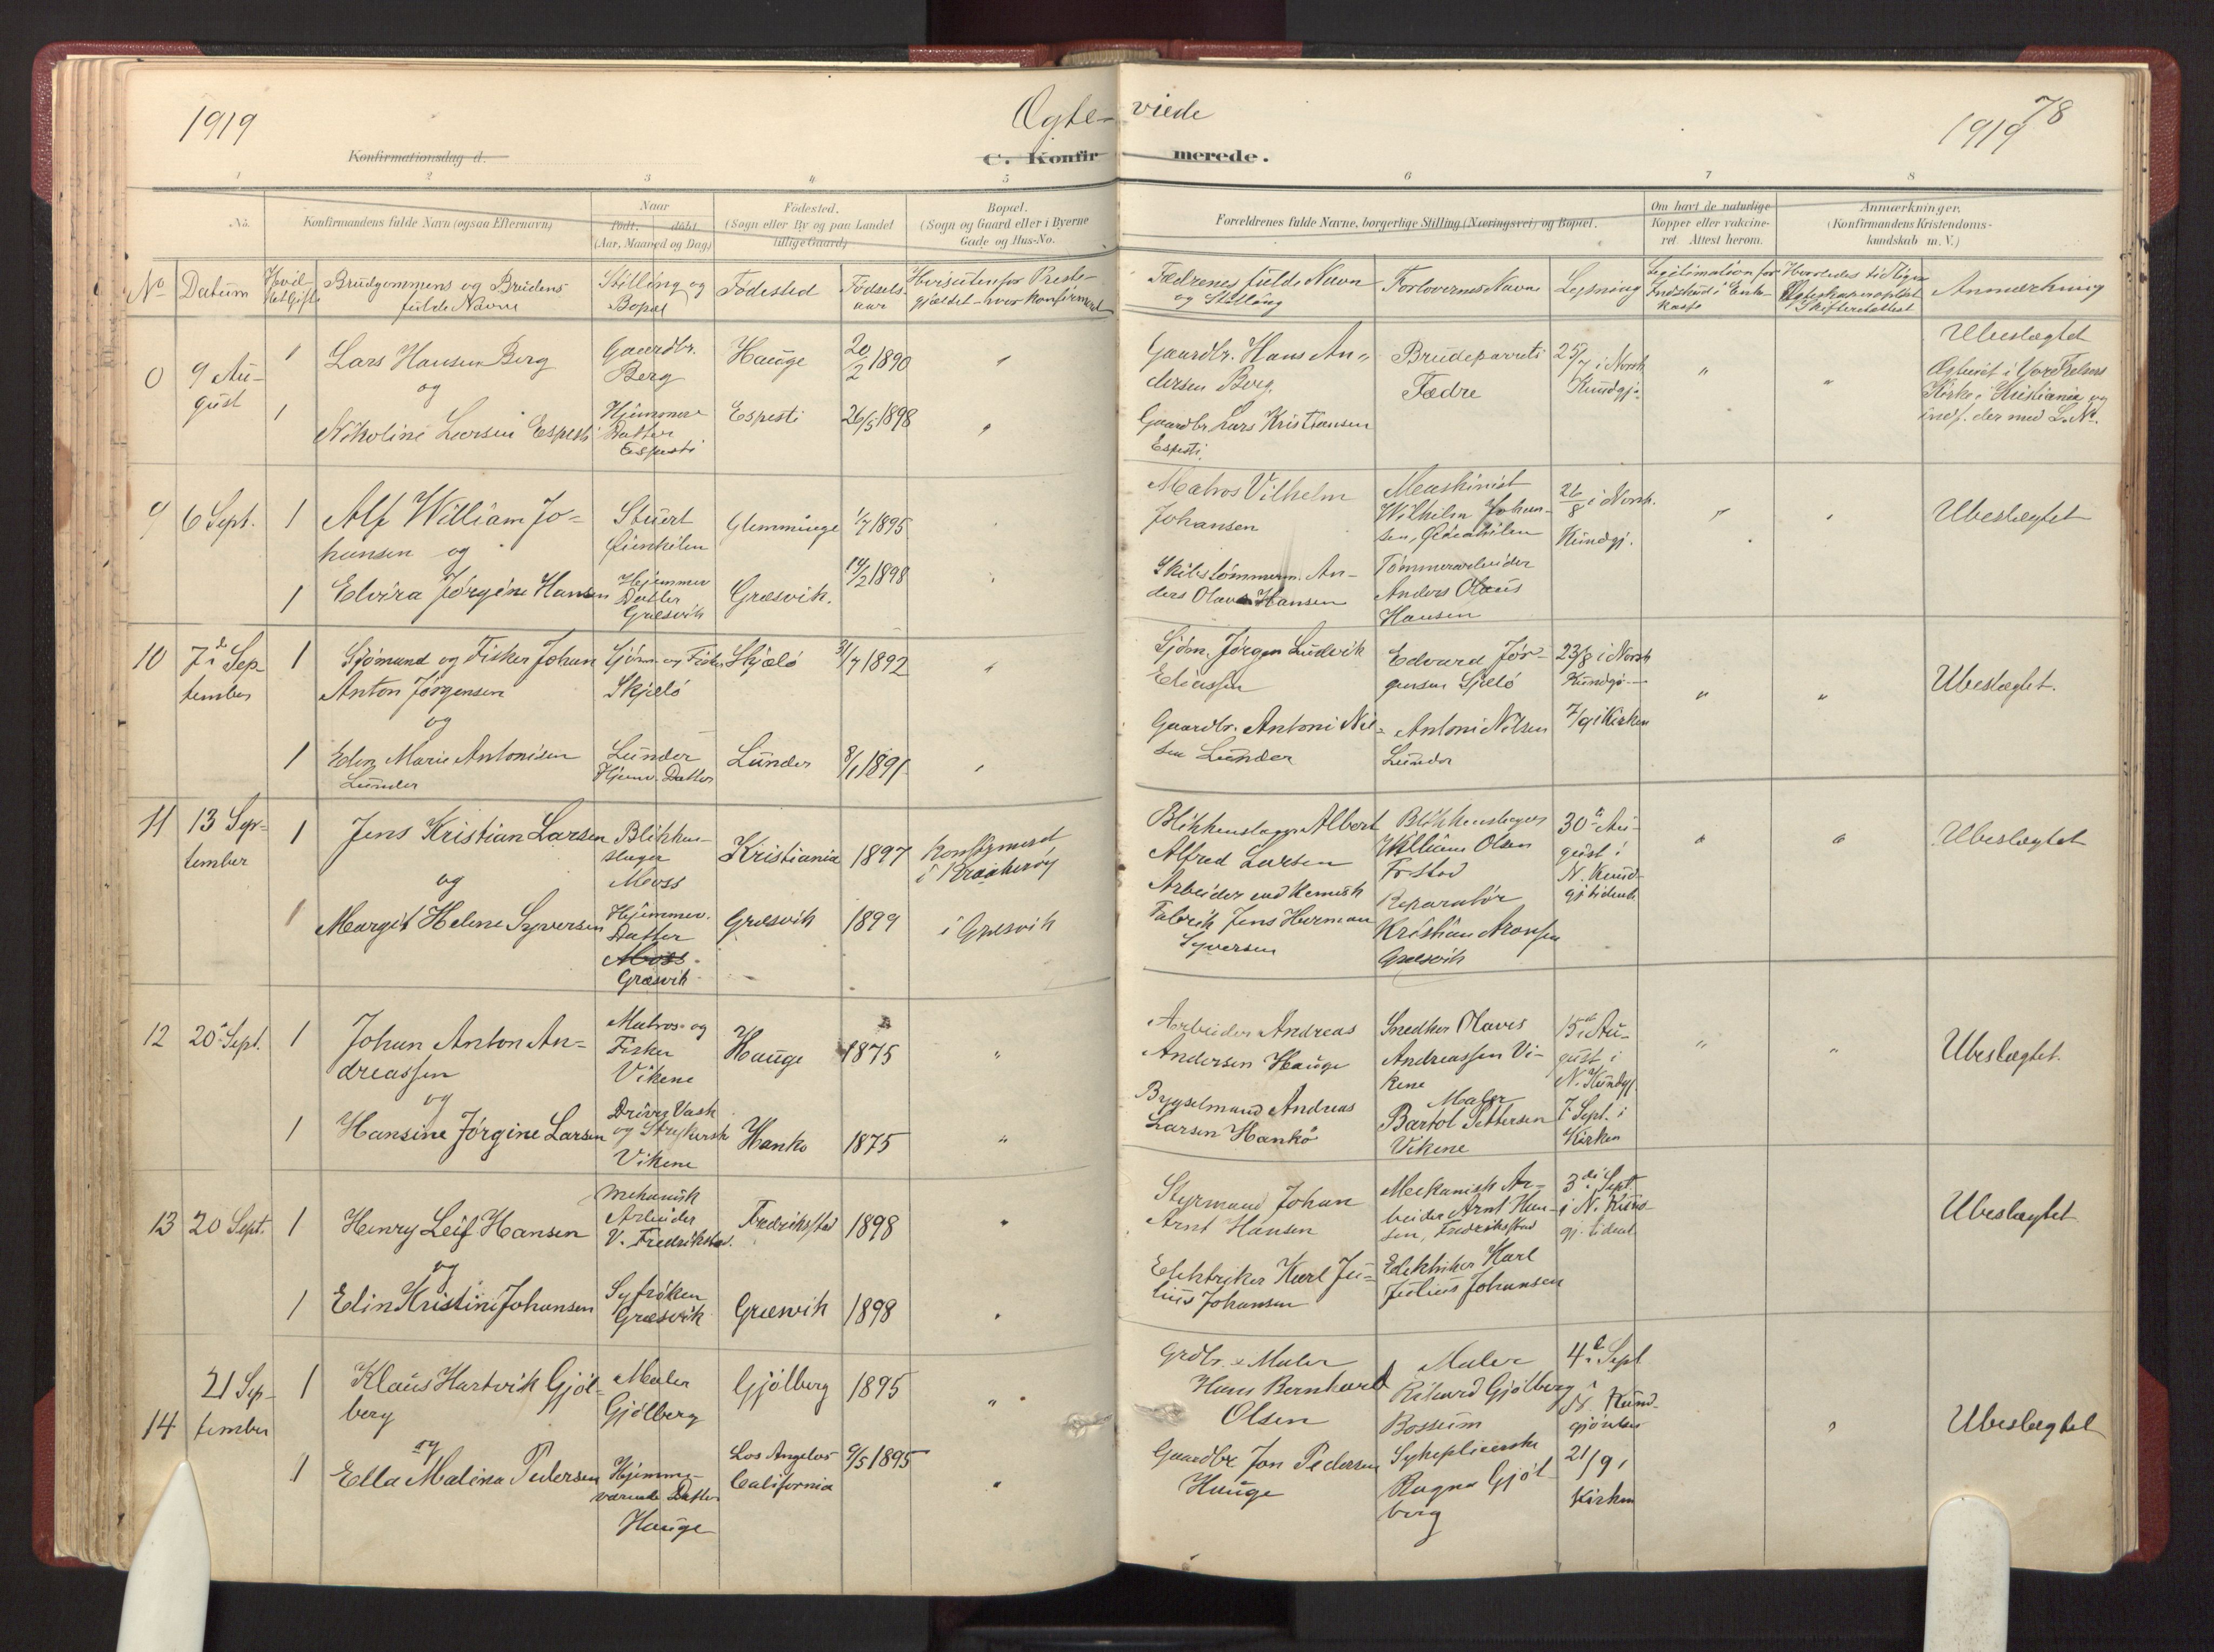 1919
Ægte-
viede
78
1919
Konfirmationsdag d.
C. Konfir
merede.
1
2
3
4
5
6
7
8
No.
Konfirmandens fulde Navn (ogsaa Efternavn)
Naar
født.
døbt
(Aar, Maaned og Dag)
Fødested.
(Sogn eller By og paa Landet
tillige Gaard)
Bopæl.
(Sogn og Gaard eller i Byerne
Gade og Hus-No.
Forældrenes fulde Navne, borgerlige Stilling (Næringsvei) og Bopæl.
Om havt de naturlige
Kopper eller vakcine-
ret. Attest herom.
Anmærkninger.
(Konfirmandens Kristendoms-
kundskab m. V.)
No
Datum
Hvil
Brudgommens og Brudens
fulde Navne
Stilling og
Bopæl
Fødested
Fødsels-
aar
Hvis udenfor Preste-
gjældet - hvor konfirmeret
Fædrenes fulde Navn
og Stilling
Forlovernes Navne
Lysning
Legitimation for
Indskud i Enke-
kasse
Hvorledes tidligere
Ægteskaper opløst
Skifteretsattest
Anmærkning
0
9 Au-
gust
1
Lars Hansen Berg
og
Gaardbr.
Berg
Hauge
20/2 1890
"
Gaardbr. Hans An-
dersen Berg.
Brudeparrets
Fædre
25/7 i Norsk
Kundgj.
"
"
Ubeslægtet
Ægteviet i Vor Frelsers
Kirke i Kristiania og
indf. der med L. No.
1
Nikoline Larsen Espesti
Hjemmev.
Datter
Espesti
Espesti
26/5 1898
"
Gaardbr. Lars Kristiansen
Espesti.
9
6 Sept.
1
Alf William Jo-
hansen og
Stuert
Glemminge
1/7 1895
Matros Vilhelm
Johansen
Maskinist
Wilhelm Johan-
26/8 i Norsk.
Kundgj.
"
"
Ubeslægtet
1
Elvira Jørgine Hansen
Hjemmev
Datter
Græsvik
Græsvik.
14/2 1898
Skibstømmerm. An-
ders Olaus Hansen
Tømmerarbeider
Anders Olaus
Hansen
10
7de Sep-
tember
1
Sjømand og Fisker Johan
Anton Jørgensen
og
Sjøm. og Fisker
Skjelø
Skjælø
31/7 1892
"
Sjøm. Jørgen Ludvik
Eliassen
Edvard Jør-
gensen Sjælø
23/8 i Norsk
Kundgj.
7/9 i Kirken
"
"
Ubeslægtet.
1
Elen Marie Antonisen
Lunder
Lunder
Hjemv. Datter
Lunder
8/1 1891
"
Gaardbr. Antoni Nil-
sen Lunder
Antoni Nilsen
Lunder
11
13 Sep-
tember
1
Jens Kristian Larsen
og
Blikken-
slager
Moss
Kristiania
1897
Konfirmert
i Kraakerøy
Blikkenslager Albert
Alfred Larsen
Blikkenslager
William Olsen
Fr.stad
30te Au-
gust i
N. Kund-
gj. tidende
"
"
Ubeslægtet
1
Margit Helene Syversen
Hjemmev.
Datter
Moss
Græsvik
Græsvik
1899
i Græsvik
Arbeider ved Kemisk
Fabrik Jens Herman
Syversen
Reparatør
Kristian Aronsen
Græsvik
12
20de Sept.
1
Johan Anton An-
dreassen
og
Matros og
Fisker
Vikene
Hauge
1875
"
Arbeider Andreas
Andersen Hauge
Snedker Olavs
Andreassen Vi-
kene
15de Au-
gust i
N. Kundgj.
"
"
Ubeslægtet.
1
Hansine Jørgine Larsen
Driver Vask
og Strykersk
Vikene
Hankø
1875
"
Bygselmand Andreas
Larsen Hankø
Maler
Bartol Pettersen
Vikene
7. Sept. i
Kirken
13
20 Sept.
1
Henry Leif Hansen
og
Mekanisk
Arbeider
V. Fredrikstad.
Fredrikstad
1898
"
Styrmand Johan
Arnt Hansen
Mekanisk Ar-
beider Arnt Han-
sen, Fredrikstad
3die Sept.
i N. Kund-
gj. tidend
Ubeslægtet
1
Elin Kristine Johansen
Syfrøken
Græsvik
Græsvik
1898
"
Elektriker Karl Ju-
lius Johansen
Elektriker Karl
Julius Johansen
14
21 Sep-
tember
1
Klaus Hartvik Gjøl-
berg
og
Maler
Gjølberg
Gjølberg
1895
"
Grdbr. & Maler
Hans Bernhard
Olsen
Maler
Rikard Gjølberg
Bossum
4de Sept
i
N. Kund-
gjørelser
"
Ubeslægtet
1
Ella Malina Pedersen
Hjemme-
værende Datter
Hauge
Los Angelos
California
9/5 1895
"
Gaardbr Jon Pedersen
Hauge
Sykepleierske
Ragna Gjøl-
berg
21/9 i
Kirken